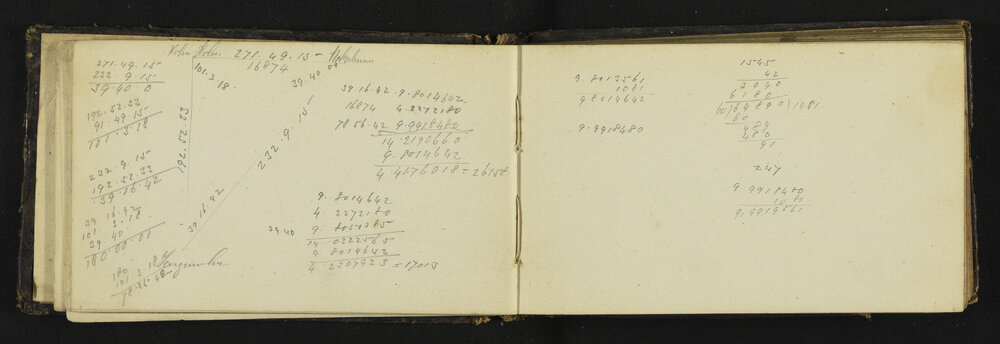 271.49.15
16874
271.49.15
232.9.15
39.40.0
192.52.33
91.49.15
101.3.18
232.9.15
192.52.33
39.16.42
39.16.42
101.3.18
39.40
180.00.00
180
101.3.18
78.56.42
101.3
18.
192.52.33
232.9.15
39.40.00
39.16.42
39.16.42. 9.8014642.
16874 4.2272180
78.56.42 9.9918480
14.2190660
9.8014642
4.4176018=26158
9.8014642
4.2272180
39.40 9.8050385
14.0322565
9.8014642
4.2307923=17013
9.8013561
1081
9.8014642
9.9918480
1545
42
3090
6180
60/64890/1081
60
489
480
90
247
9.9918480
1081
9.9919561